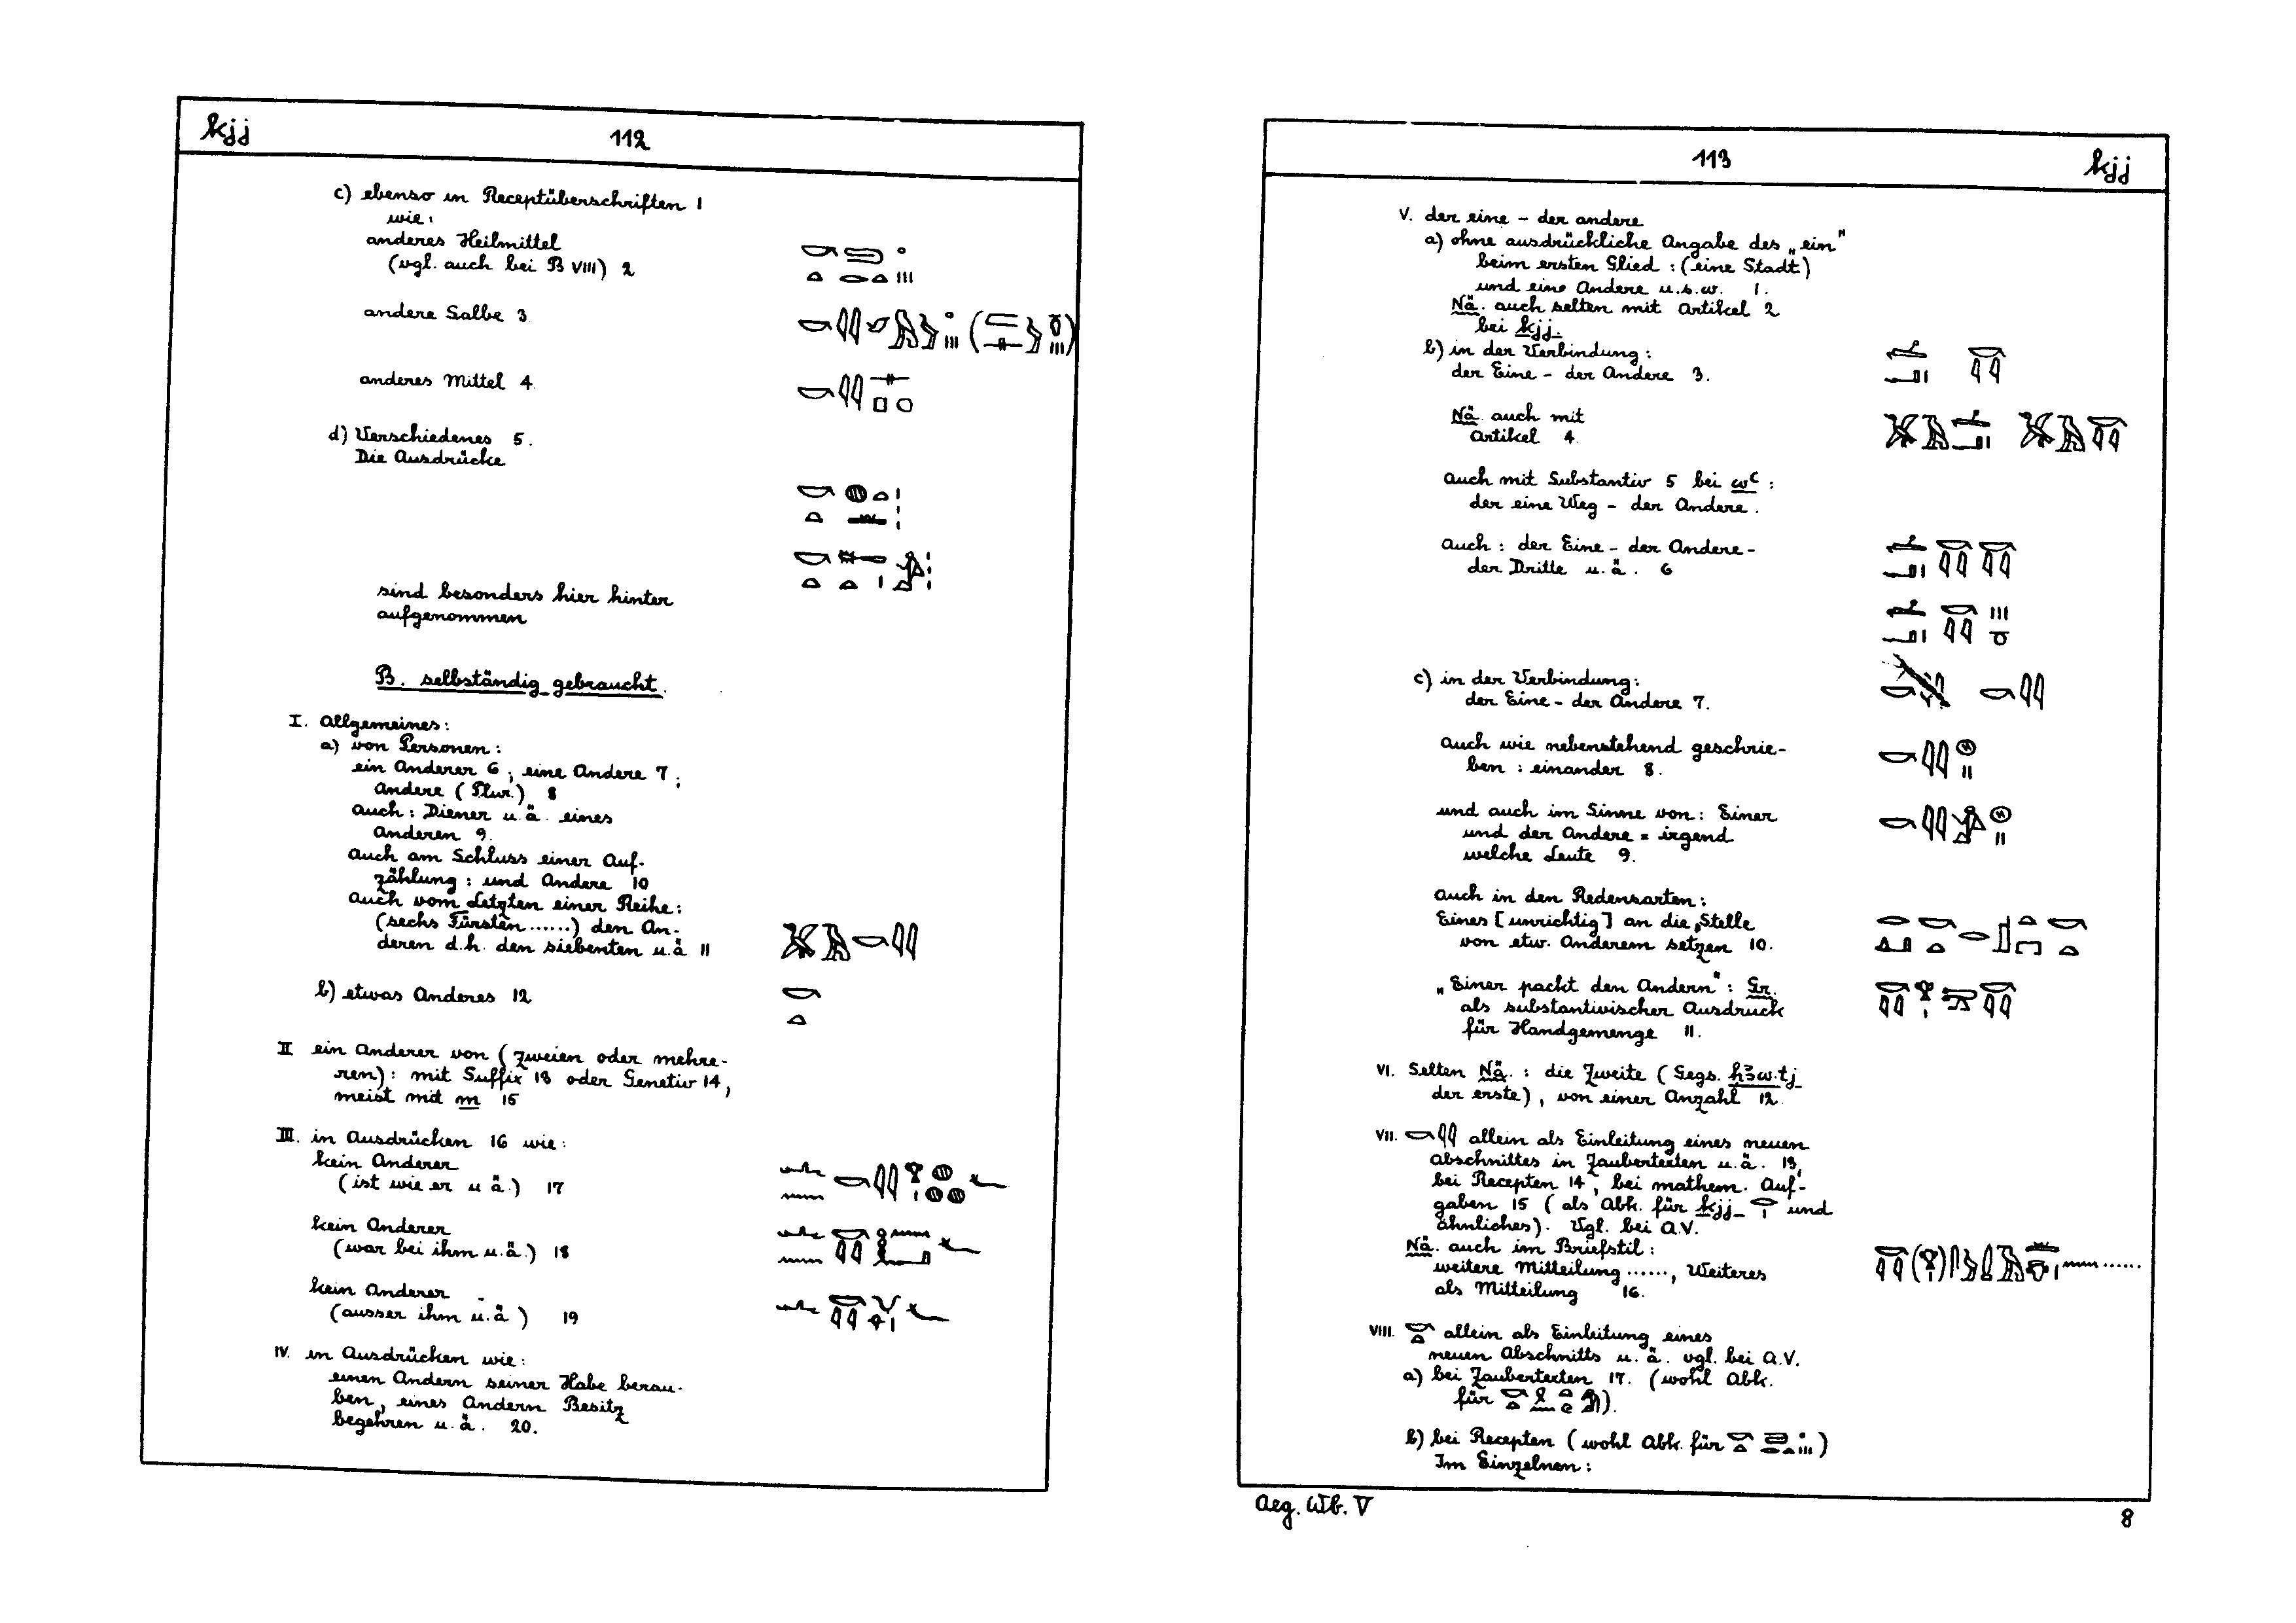 kjj 112
c) ebenso in Receptüberschriften 1
wie:
anderes Heilmittel
(vgl. auch bei B VIII) 2
andere Salbe 3
anderes Mittel 4
d) Verschiedenes 5.
Die Ausdrücke
sind besonders hier hinter
aufgenommen
B. selbständig gebraucht.
I. Allgemeines:
a) von Personen:
ein Anderer 6, eine Andere 7;
Andere (Plur.) 8
auch: Diener u.ä. eines
Anderen 9.
auch am Schluss einer Auf-
zählung: und Andere 10
auch vom Letzten einer Reihe:
(sechs Fürsten......) den An-
deren d.h. den siebenten u.ä 11
b) etwas Anderes 12
II ein Anderer von (zweien oder mehre-
ren): mit Suffix 13 oder Genetiv 14,
meist mit m 15
III. in Ausdrücken 16 wie:
kein Anderer
(ist wie er u ä.) 17
kein Anderer
(war bei ihm u.ä.) 18
kein Anderer
(ausser ihm u.ä) 19
IV. in Ausdrücken wie:
einen Andern seiner Habe berau-
ben, eines Andern Besitz
begehren u.ä. 20.
113 kjj
V. der eine – der andere
a) ohne ausdrückliche Angabe des „ein"
beim ersten Glied: (eine Stadt)
und eine Andere u.s.w. 1.
Nä. auch selten mit Artikel 2
bei kjj.
b) in der Verbindung:
der Eine – der Andere 3.
Nä. auch mit
Artikel 4.
auch mit Substantiv 5 bei wꜥ:
der eine Weg – der Andere.
auch: der Eine – der Andere –
der Dritte u.ä. 6
c) in der Verbindung:
der Eine – der Andere 7.
auch wie nebenstehend geschrie-
ben: einander 8.
und auch im Sinne von: Einer
und der Andere = irgend
welche Leute 9.
auch in den Redensarten:
Eines [unrichtig] an die Stelle
von etw. Anderem setzen 10.
„Einer packt den Andern": Gr.
als substantivischer Ausdruck
für Handgemenge 11.
VI. Selten Nä.: die Zweite (Gegs. ḥꜣw.tj
der erste), von einer Anzahl 12.
VII. 𓎡𓇋𓇋 allein als Einleitung eines neuen
Abschnittes in Zaubertexten u.ä. 13,
bei Recepten 14, bei mathem. Auf-
gaben 15 (als Abk. für kjj 𓂋𓏤 und
ähnliches). Vgl. bei A.V.
Nä. auch im Briefstil:
weitere Mitteilung ......, Weiteres
als Mitteilung 16.
VIII. 𓎡𓏏 allein als Einleitung eines
neuen Abschnitts u.ä. vgl. bei A.V.
a) bei Zaubertexten 17. (wohl Abk.
für
b) bei Recepten (wohl Abk. für
Im Einzelnen:
Aeg. Wb. V 8